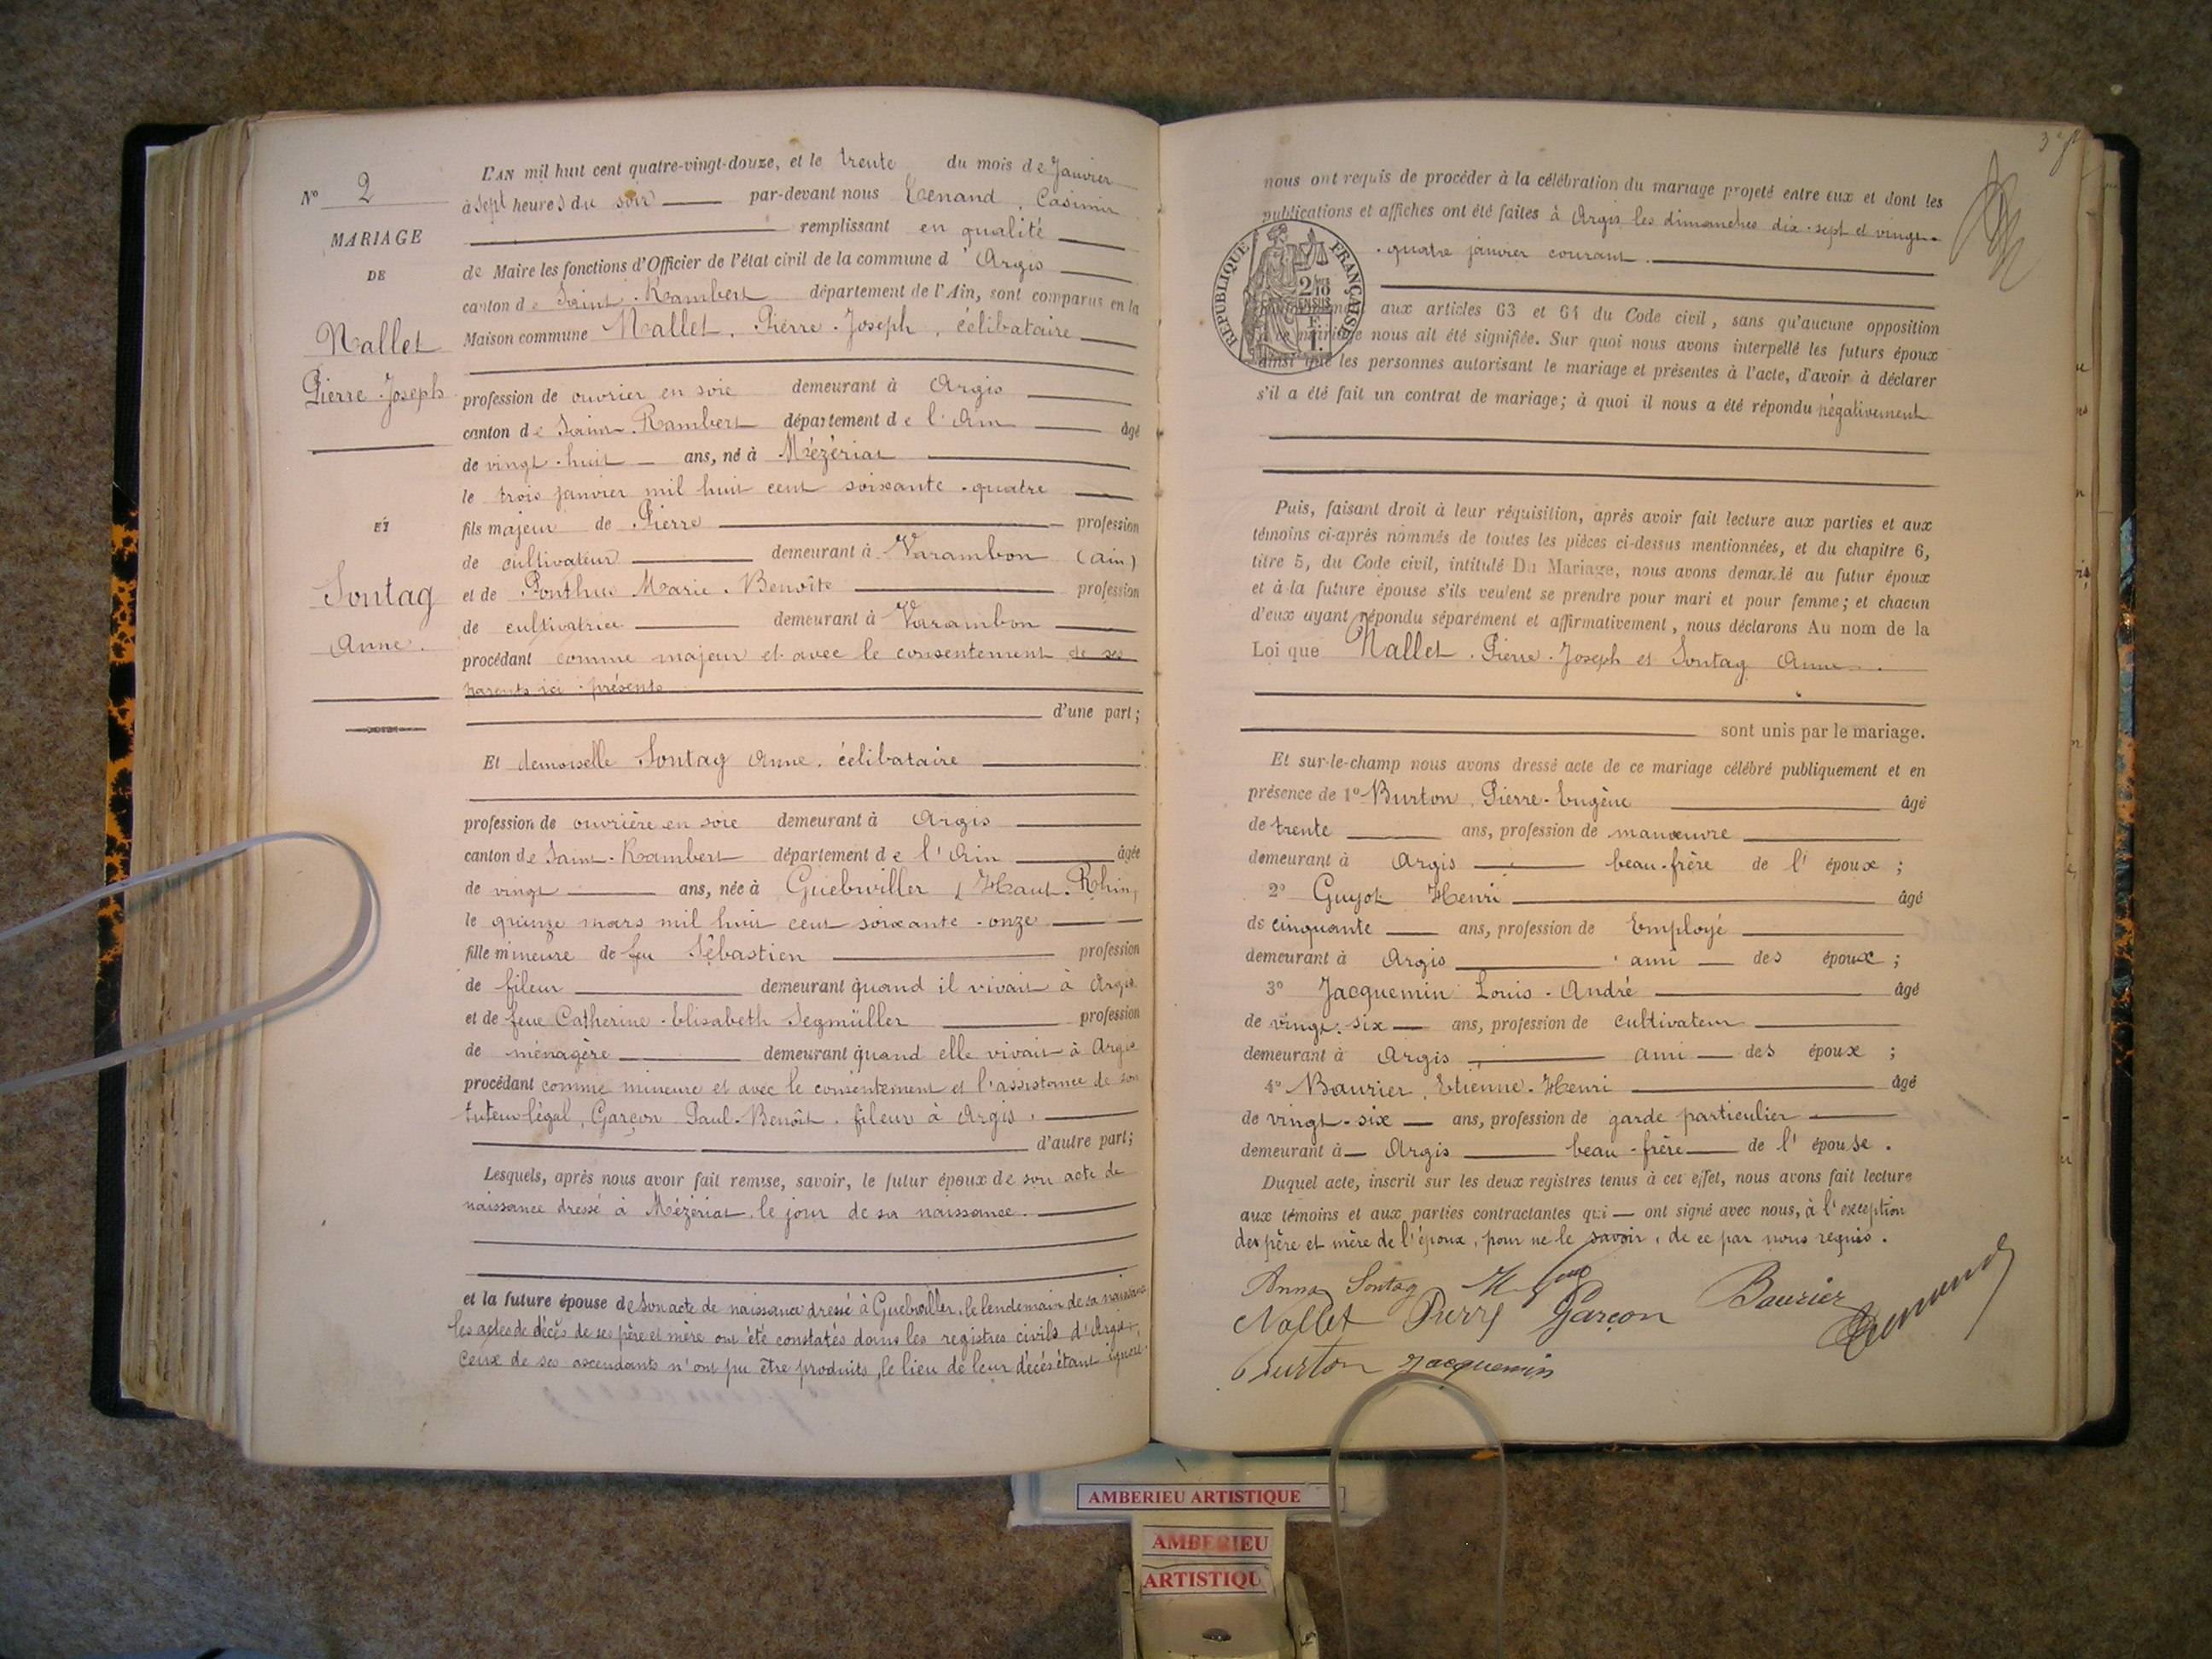 N° 2
MARIAGE
DE
Nallet
Pierre-Joseph
ET
Sontag
Anne.
L'AN mil huit cent quatre-vingt-douze, et le trente du mois de Janvier
à sept heures du soir par-devant nous Tenand, Casimir
remplissant en qualité
de Maire les fonctions d'Officier de l'état civil de la commune d'Argis
canton de Saint-Rambert département de l'Ain, sont comparus en la
Maison commune Nallet, Pierre-Joseph, célibataire
profession de ouvrier en soie demeurant à Argis
canton de Saint-Rambert département de l'Ain âgé
de vingt-huit ans, né à Mézériat
le trois janvier mil huit cent soixante-quatre
fils majeur de Pierre profession
de cultivateur demeurant à Varambon (Ain)
et de Ponthus Marie-Benoîte profession
de cultivatrice demeurant à Varambon
procédant comme majeur et avec le consentement de ses
parents ici présents
d'une part;
Et demoiselle Sontag Anne, célibataire
profession de ouvrière en soie demeurant à Argis
canton de Saint-Rambert département de l'Ain âgée
de vingt ans, née à Guebwiller (Haut-Rhin)
le quinze mars mil huit cent soixante-onze
fille mineure de feu Sébastien profession
de fileur demeurant quand il vivait à Argis
et de feue Catherine-Elisabeth Segmüller profession
de ménagère demeurant quand elle vivait à Argis
procédant comme mineure et avec le consentement et l'assistance de son
tuteur légal, Garçon Paul-Benoît, fileur à Argis.
d'autre part;
Lesquels, après nous avoir fait remise, savoir, le futur époux de son acte de
naissance dressé à Mézériat, le jour de sa naissance.
et la future épouse de son acte de naissance dressé à Guebwiller, le lendemain de sa naissance
les actes de décès de ses père et mère ont été constatés dans les registres civils d'Argis,
ceux de ses ascendants n'ont pu être produits, le lieu de leur décès étant ignoré.
nous ont requis de procéder à la célébration du mariage projeté entre eux et dont les
publications et affiches ont été faites à Argis les dimanches dix-sept et vingt-
quatre janvier courant.
RÉPUBLIQUE FRANÇAISE
2/10 EN SUS
F. 1.
aux articles 63 et 64 du Code civil, sans qu'aucune opposition
à ce mariage nous ait été signifiée. Sur quoi nous avons interpellé les futurs époux
ainsi que les personnes autorisant le mariage et présentes à l'acte, d'avoir à déclarer
s'il a été fait un contrat de mariage; à quoi il nous a été répondu négativement
Puis, faisant droit à leur réquisition, après avoir fait lecture aux parties et aux
témoins ci-après nommés de toutes les pièces ci-dessus mentionnées, et du chapitre 6,
titre 5, du Code civil, intitulé Du Mariage, nous avons demandé au futur époux
et à la future épouse s'ils veulent se prendre pour mari et pour femme; et chacun
d'eux ayant répondu séparément et affirmativement, nous déclarons Au nom de la
Loi que Nallet Pierre-Joseph et Sontag Anne.
sont unis par le mariage.
Et sur-le-champ nous avons dressé acte de ce mariage célébré publiquement et en
présence de 1° Burton, Pierre-Eugène âgé
de trente ans, profession de manœuvre
demeurant à Argis beau-frère de l'époux;
2° Guyot Henri âgé
de cinquante ans, profession de Employé
demeurant à Argis ami des époux;
3° Jacquemin Louis-André âgé
de vingt-six ans, profession de cultivateur
demeurant à Argis ami des époux;
4° Baurier, Etienne-Henri âgé
de vingt-six ans, profession de garde particulier
demeurant à Argis beau-frère de l'épouse.
Duquel acte, inscrit sur les deux registres tenus à cet effet, nous avons fait lecture
aux témoins et aux parties contractantes qui ont signé avec nous, à l'exception
des père et mère de l'époux, pour ne le savoir, de ce par nous requis.
Anna Sontag
Nallet Pierre Garçon Baurier
Burton Jacquemin
AMBERIEU ARTISTIQUE
AMBERIEU
ARTISTIQU